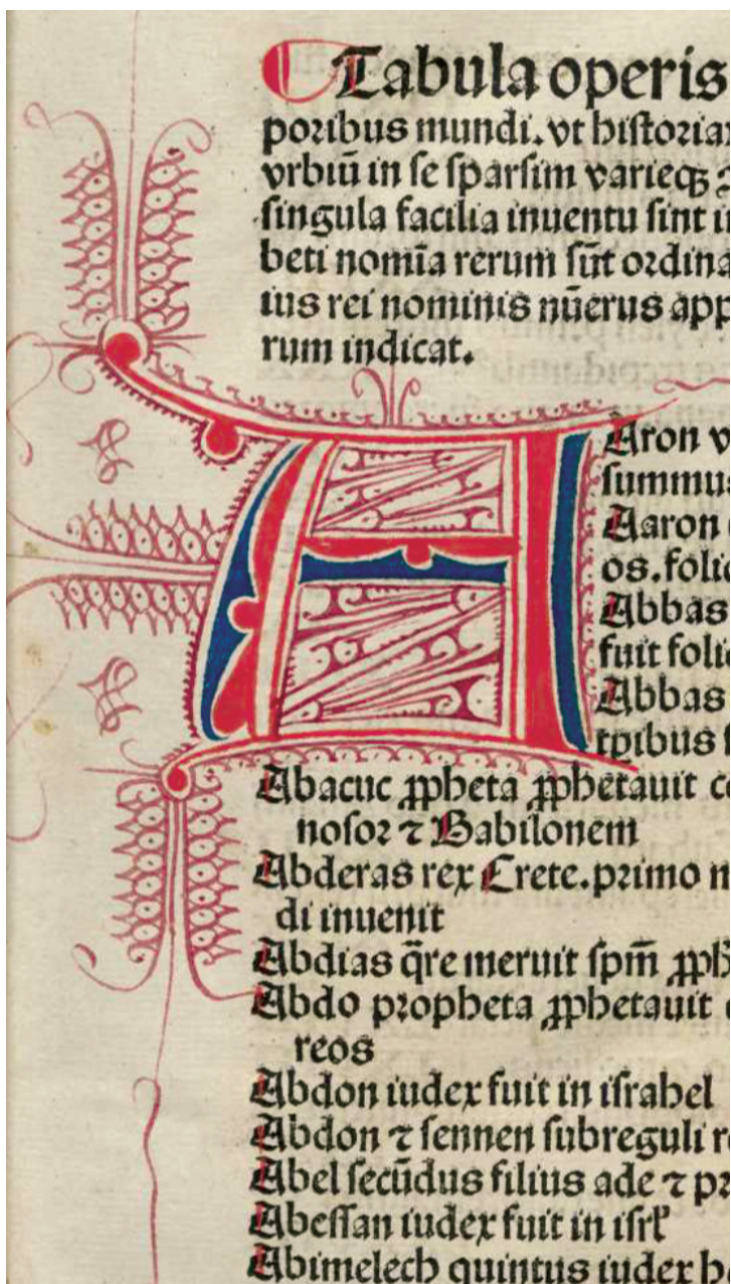 Tabula operis
poribus mundi. vt historiar
vrbiū in se sparsim varieqꝫ
singula facilia inuentu sint
beti nomīa rerum sūt ordina
ius rei nominis nūerus app
rum indicat.
Aron v
summus
Aaron
os. folio
Abbas
fuit folio
Abbas
tpibus
Abacuc ꝓpheta ꝓphetauit
nosor ⁊ Babilonem
Abderas rex Crete. primo
di inuenit
Abdias q̄re meruit spm̄ ꝓph
Abdo propheta ꝓphetauit
reos
Abdon iudex fuit in israhel
Abdon ⁊ sennen subreguli
Abel secūdus filius ade ⁊
Abessan iudex fuit in isrł
Abimelech quintus iudex